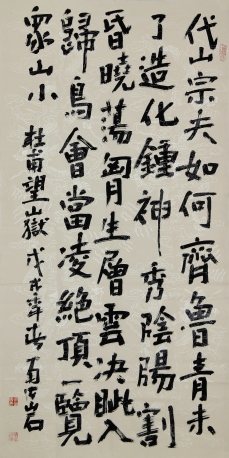 岱宗夫如何齊魯青未
了造化鍾神秀陰陽割
昏曉蕩胷生層雲決眦入
歸鳥會當凌絕頂一覽
眾山小
杜甫望嶽 戊戌年春